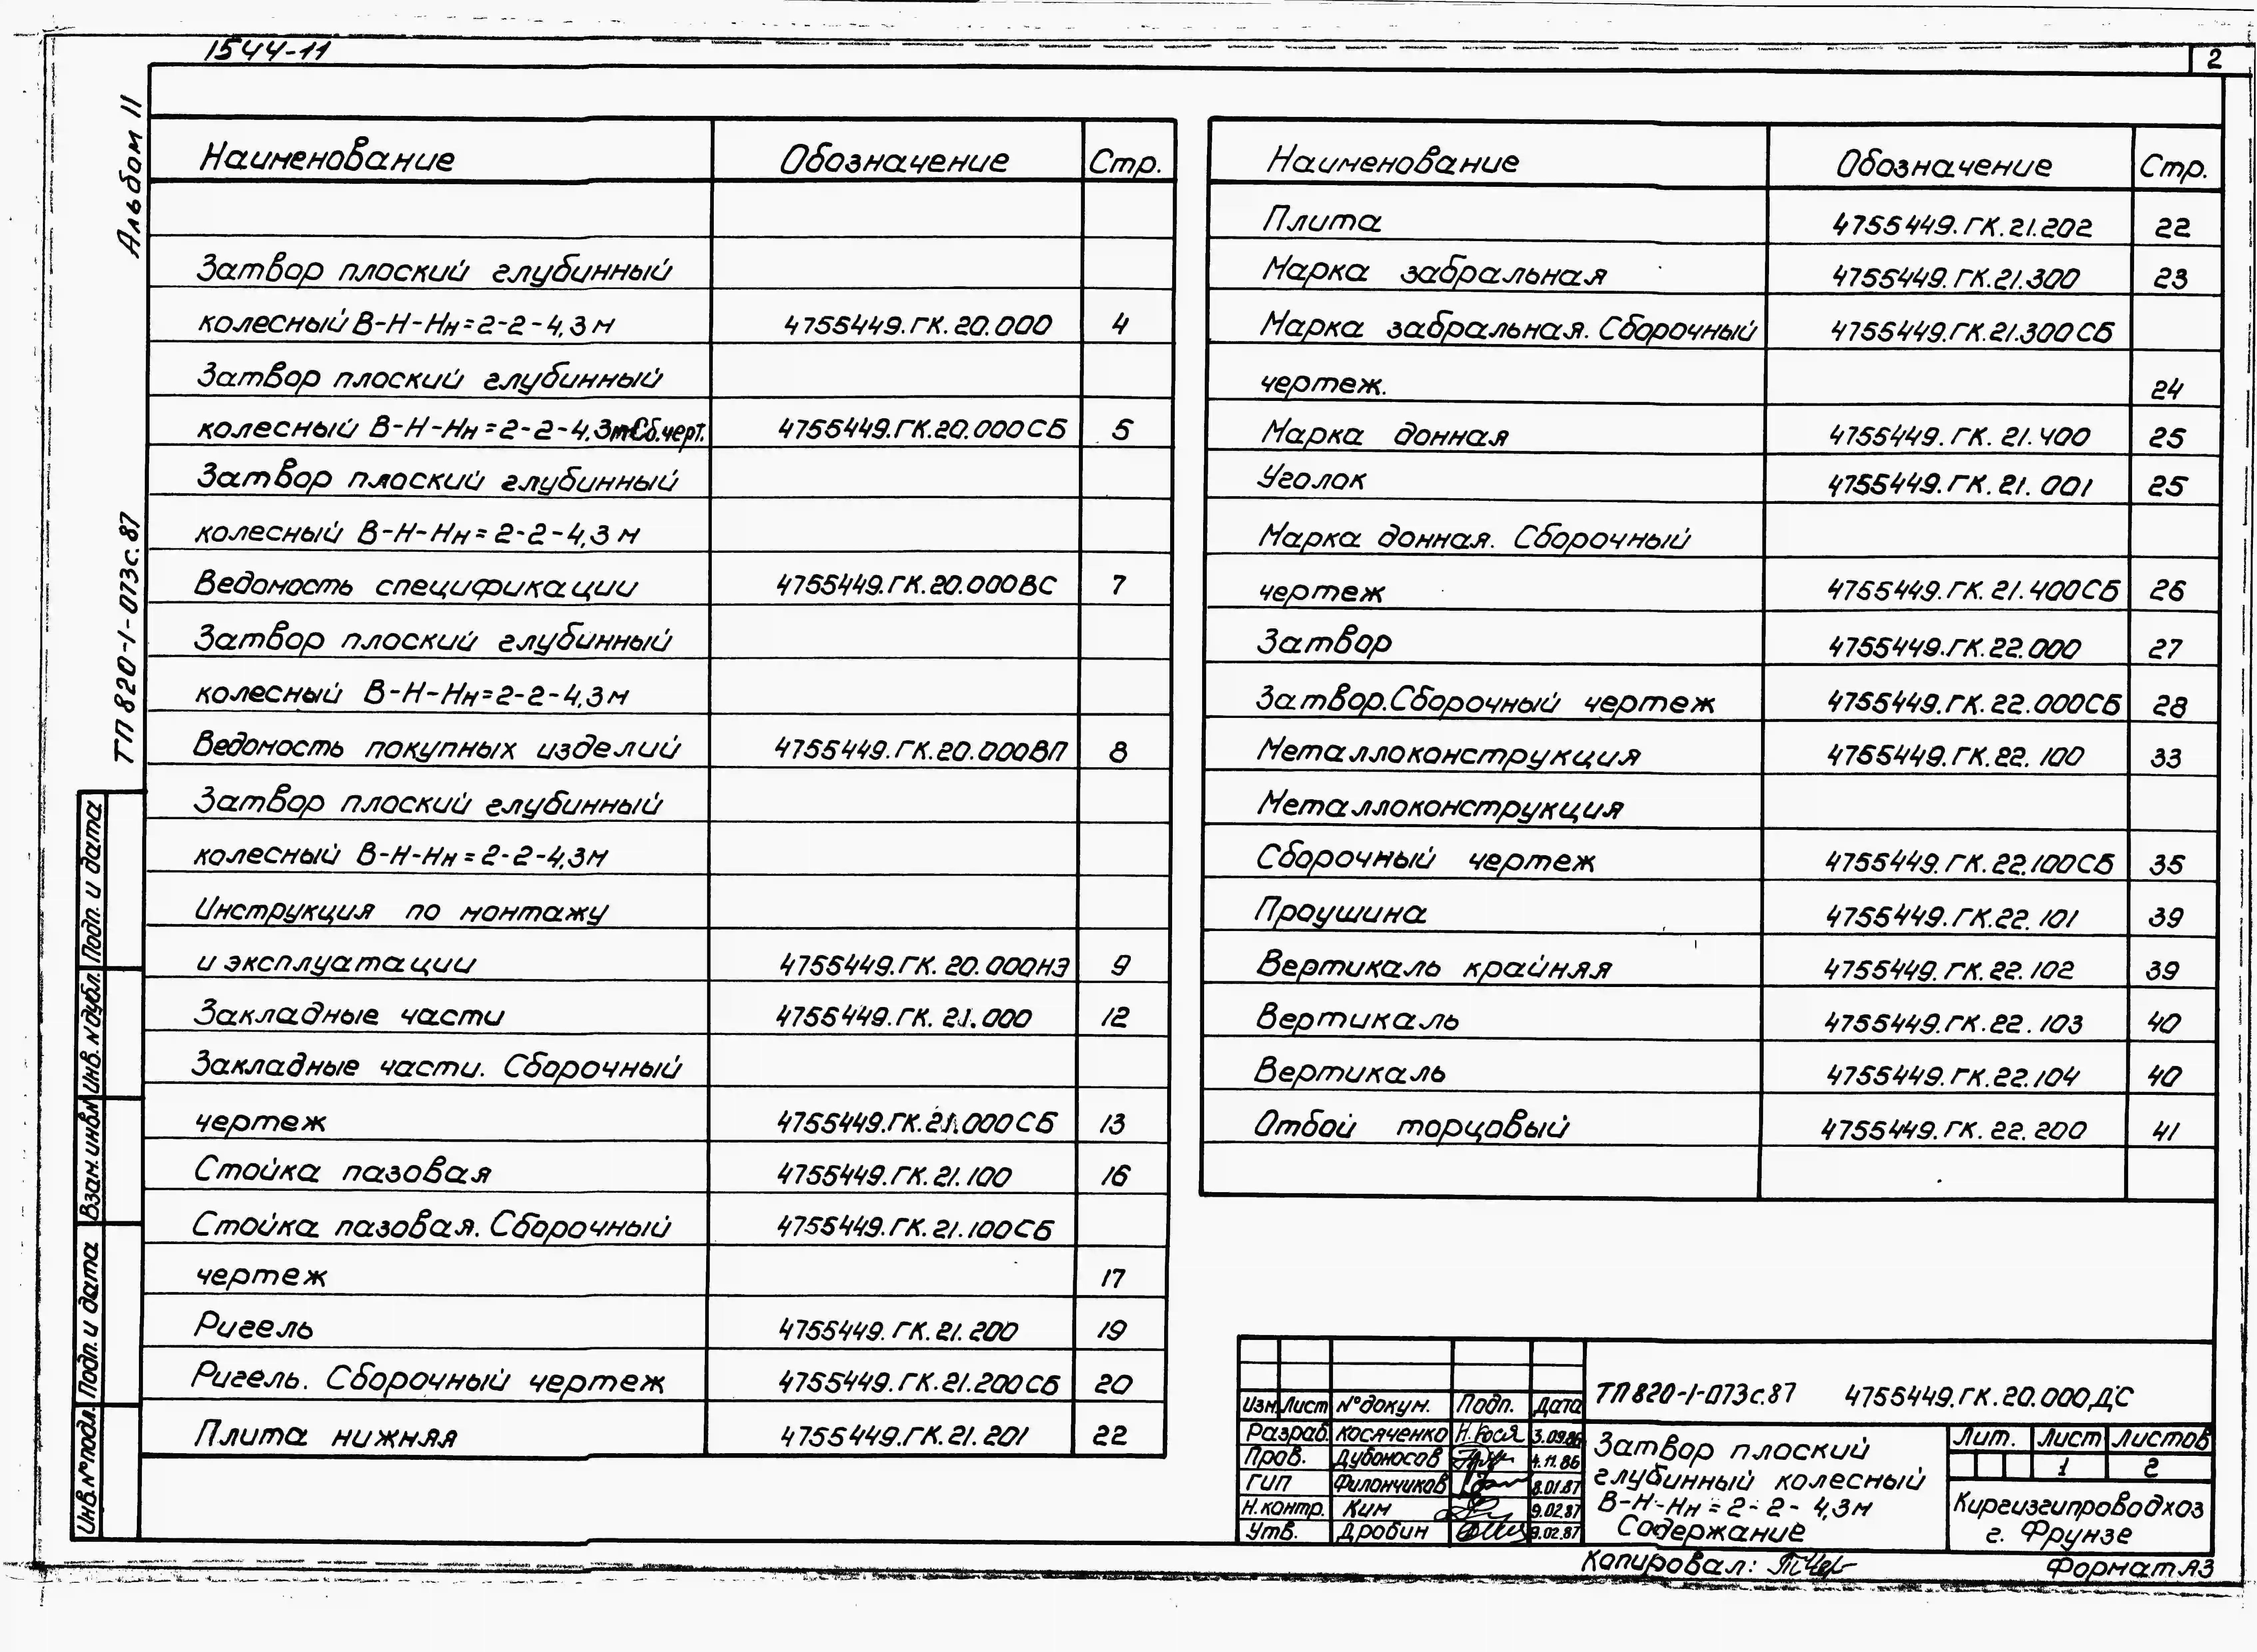 1544-11
2
Альбом 11
ТП 820-1-073с.87
Наименование Обозначение Стр.
Затвор плоский глубинный
колесный В-Н-Нн=2-2-4,3м 4755449.ГК.20.000 4
Затвор плоский глубинный
колесный В-Н-Нн=2-2-4,3м Сб.черт. 4755449.ГК.20.000СБ 5
Затвор плоский глубинный
колесный В-Н-Нн=2-2-4,3м
Ведомость спецификации 4755449.ГК.20.000ВС 7
Затвор плоский глубинный
колесный В-Н-Нн=2-2-4,3м
Ведомость покупных изделий 4755449.ГК.20.000ВП 8
Затвор плоский глубинный
колесный В-Н-Нн=2-2-4,3м
Инструкция по монтажу
и эксплуатации 4755449.ГК.20.000НЭ 9
Закладные части 4755449.ГК.21.000 12
Закладные части. Сборочный
чертеж 4755449.ГК.21.000СБ 13
Стойка пазовая 4755449.ГК.21.100 16
Стойка пазовая. Сборочный 4755449.ГК.21.100СБ
чертеж 17
Ригель 4755449.ГК.21.200 19
Ригель. Сборочный чертеж 4755449.ГК.21.200СБ 20
Плита нижняя 4755449.ГК.21.201 22
Наименование Обозначение Стр.
Плита 4755449.ГК.21.202 22
Марка забральная 4755449.ГК.21.300 23
Марка забральная. Сборочный 4755449.ГК.21.300СБ
чертеж. 24
Марка донная 4755449.ГК.21.400 25
Уголок 4755449.ГК.21.001 25
Марка донная. Сборочный
чертеж 4755449.ГК.21.400СБ 26
Затвор 4755449.ГК.22.000 27
Затвор.Сборочный чертеж 4755449.ГК.22.000СБ 28
Металлоконструкция 4755449.ГК.22.100 33
Металлоконструкция
Сборочный чертеж 4755449.ГК.22.100СБ 35
Проушина 4755449.ГК.22.101 39
Вертикаль крайняя 4755449.ГК.22.102 39
Вертикаль 4755449.ГК.22.103 40
Вертикаль 4755449.ГК.22.104 40
Отбой торцовый 4755449.ГК.22.200 41
Подп. и дата
Инв.№дубл.
Взам.инв.№
Подп. и дата
Инв.№подл.
Изм. Лист №докум. Подп. Дата
Разраб. Косяченко Н.Кося 3.09.86
Пров. Дубоносов 4.11.86
ГИП Филончиков 8.01.87
Н.контр. Ким 9.02.87
Утв. Дробин 9.02.87
ТП 820-1-073с.87 4755449.ГК.20.000ДС
Затвор плоский
глубинный колесный
В-Н-Нн=2-2-4,3м
Содержание
Лит. Лист Листов
1 2
Киргизгипроводхоз
г. Фрунзе
Копировал:
Формат А3